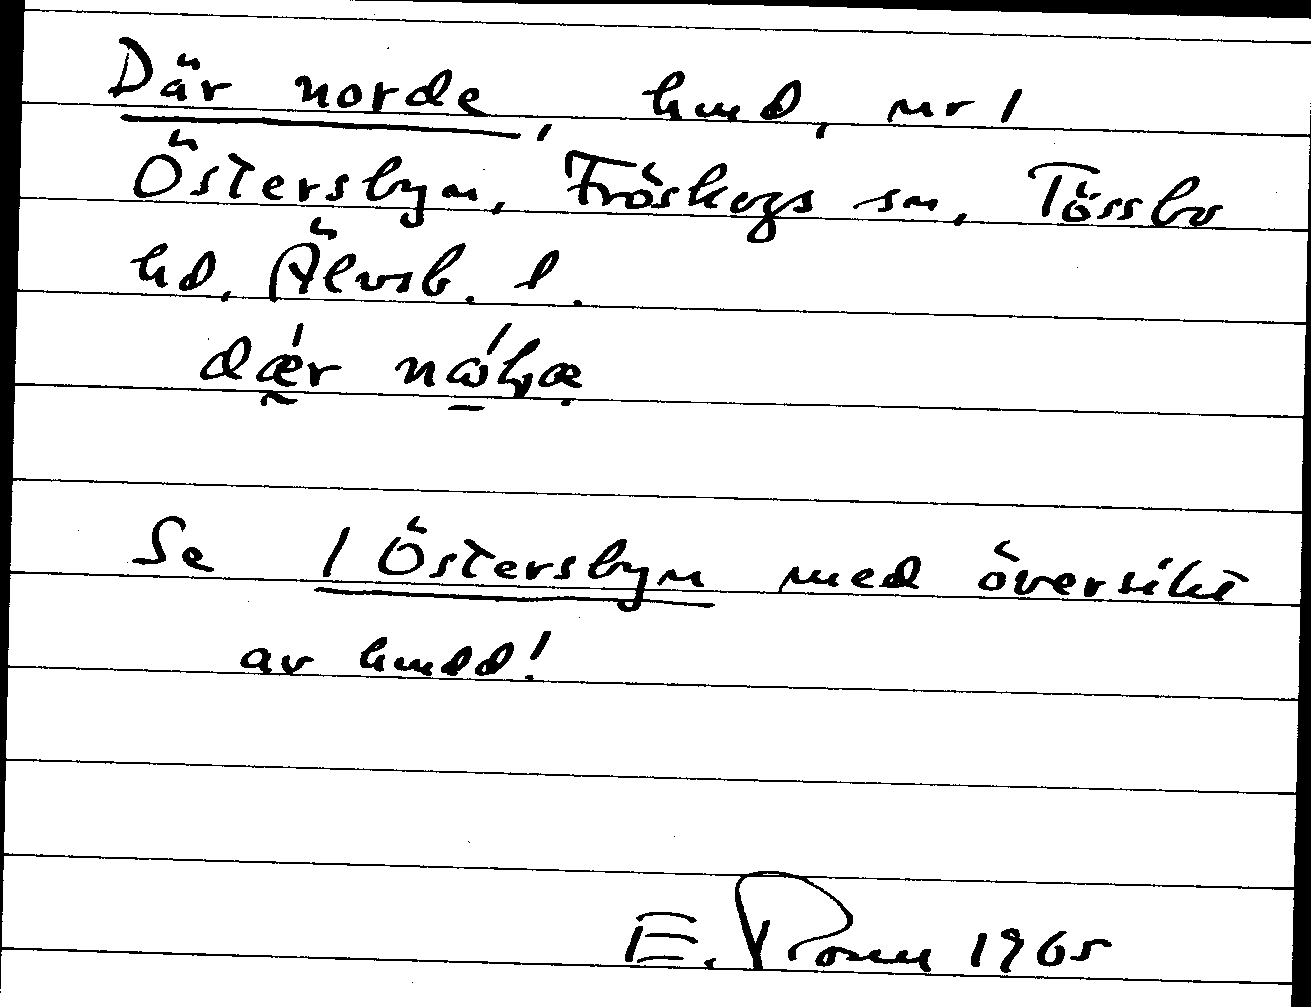 Där norde, hmd, nr 1
Östersbyn, Fröskogs sn, Tössbo
hd, Älvsb. l.
dǽr
Se 1 Östersbyn med översikt
av hmdd!
E. 1965